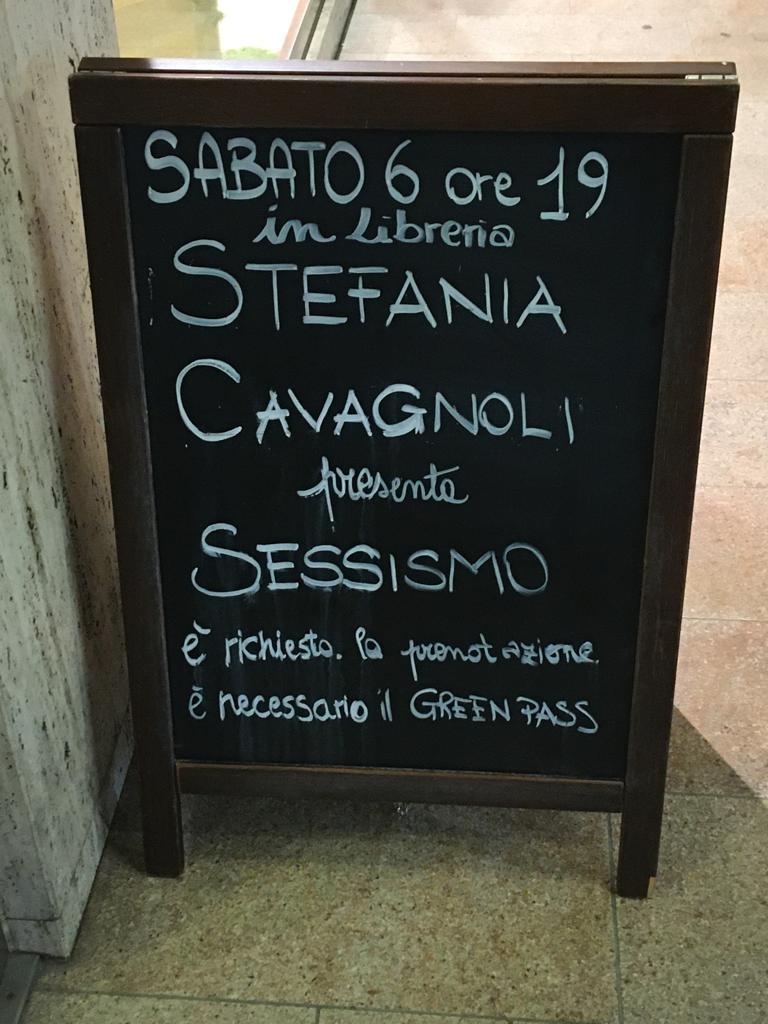 SABATO 6 ore 19
in libreria
STEFANIA
CAVAGNOLI
presenta
SESSISMO
è richiesta la prenotazione
è necessario il GREEN PASS